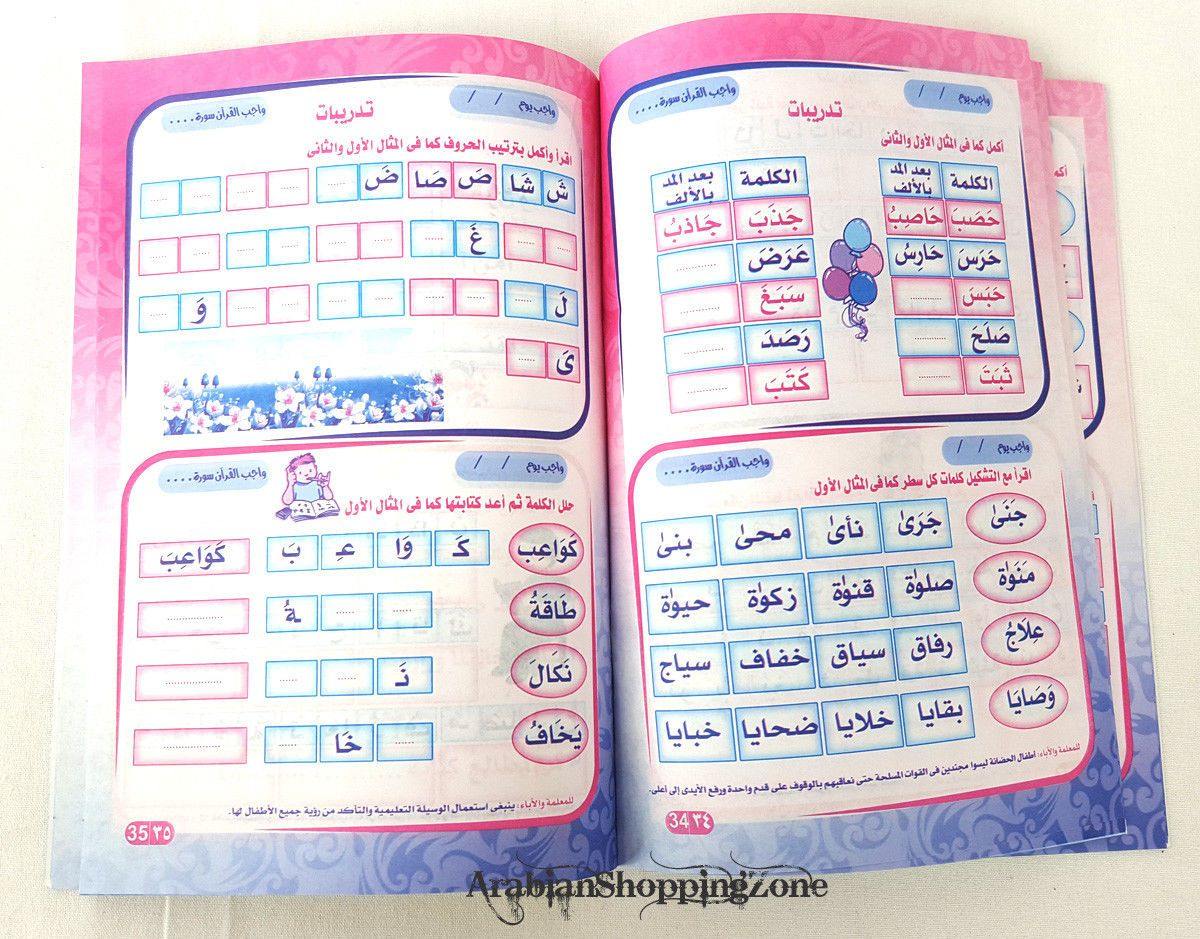 واجب يوم / / واجب القرآن سورة....
تدريبات
أكمل كما فى المثال الأول والثانى
الكلمة بعد المد بالألف الكلمة بعد المد بالألف
حَصَبَ حَاصِبُ جَذَبَ جَاذبُ
حَرَسَ حَارِسُ عَرَضَ ............
حَبَسَ ............ سَبَغَ ............
صَلَحَ ............ رَصَدَ ............
ثَبَتَ ............ كَتَبَ ............
واجب يوم / / واجب القرآن سورة....
اقرأ مع التشكيل كلمات كل سطر كما فى المثال الأول
جَنَىٰ جَرَىٰ نأىٰ محىٰ بنىٰ
مَنَوٰة صلوٰة قنوٰة زكوٰة حيوٰة
عِلَاجُ رفاق سياق خفاف سياج
وَصَايَا بقايا خلايا ضحايا خبايا
للمعلمة والأباء: أطفال الحضانة ليسوا مجندين فى القوات المسلحة حتى نعاقبهم بالوقوف على قدم واحدة ورفع الأيدى إلى أعلى.
34 ٣٤
واجب يوم / / واجب القرآن سورة....
تدريبات
اقرأ وأكمل بترتيب الحروف كما فى المثال الأول والثانى
شَ شَا صَ صَا ضَ ......
غَ ......
لَ ...... وَ ......
ىَ ......
واجب يوم / / واجب القرآن سورة....
حلل الكلمة ثم أعد كتابتها كما فى المثال الأول
كَوَاعِبَ كَـ وَا عِـ بَ كَوَاعِبَ
طَاقَةُ ...... ...... ـةُ ............
نَكَالَ نَـ ...... ...... ............
يَخَافُ ...... خَا ...... ............
للمعلمة والأباء: ينبغى استعمال الوسيلة التعليمية والتأكد من رؤية جميع الأطفال لها.
35 ٣٥
ArabianShoppingZone